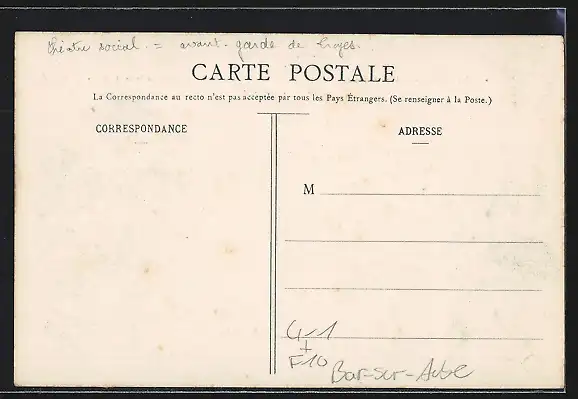 théatre social. = avant-garde de Troyes.
CARTE POSTALE
La Correspondance au recto n'est pas acceptée par tous les Pays Étrangers. (Se renseigner à la Poste.)
CORRESPONDANCE
ADRESSE
M
G-1
+
F10
Bar-sur-Aube